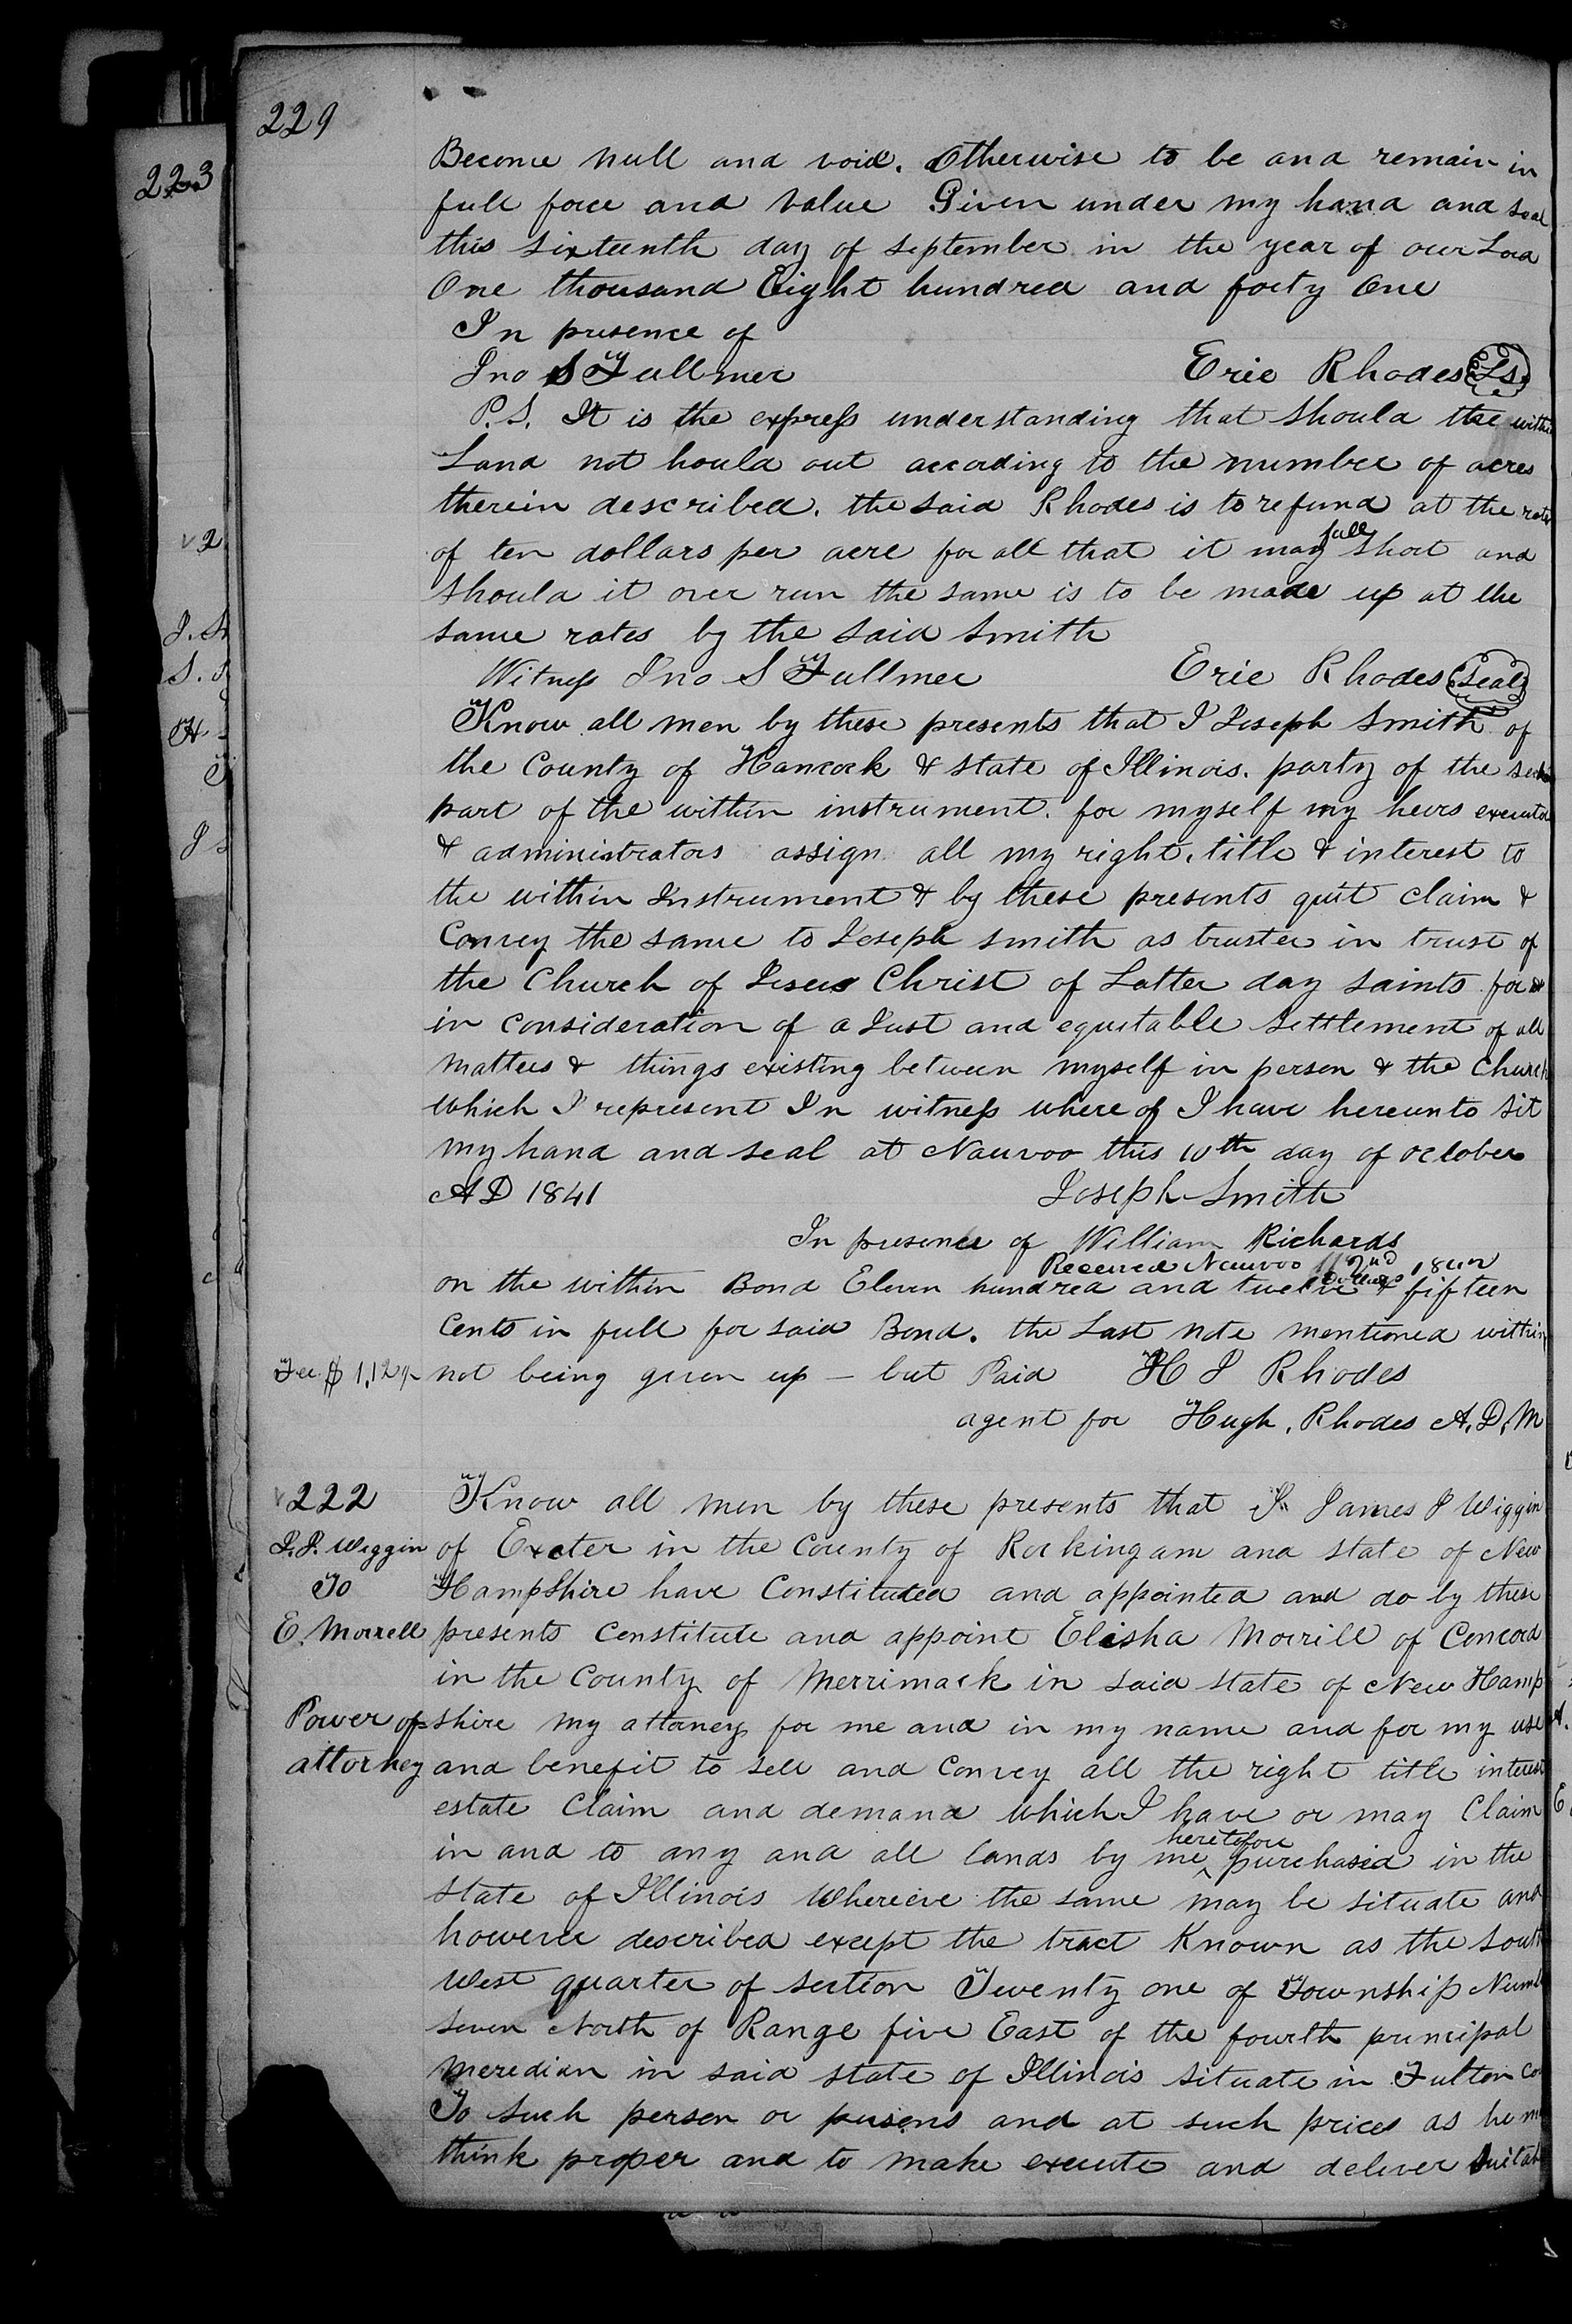 229
Become null and void. Otherwise to be and remain in
full force and value Given under my hand and seal
this sixteenth day of september in the year of our Lord
One thousand Eight hundred and forty One
In presence of
Jno S Fullmer Eric Rhodes Ls
P.S. It is the express understanding that should the within
Land not hould out according to the number of acres
therein described. the said Rhodes is to refund at the rate
of ten dollars per acre for all that it may fall short and
should it over run the same is to be made up at the
same rates by the said Smith
Witness Jno S Fullmer Eric Rhodes Seal
Know all men by these presents that I Joseph Smith of
the County of Hancock & state of Illinois. party of the
part of the within instrument. for myself my heirs
& administrators assign all my right, title & interest to
the within Instrument & by these presents quit claim &
Convey the same to Joseph Smith as trustee in trust of
the Church of Jesus Christ of Latter day saints for &
in consideration of a Just and equitable settlement of all
matters & things existing between myself in person & the Church
which I represent In witness where of I have hereunto sit
my hand and seal at Nauvoo this 10th day of october
AD 1841 Joseph Smith
In presence of William Richards
Received Nauvoo 2nd
on the within Bond Eleven hundred and twelve dollars & fifteen
Cents in full for said Bond. the Last note mentioned within
Fee $ 1,12½ not being given up - but Paid H J Rhodes
agent for Hugh. Rhodes A. D. M
222 Know all men by these presents that I James J Wiggin
J. J. Wiggin of Exeter in the County of Rockingam and state of New
To HampShire have Constituted and appointed and do by these
E. Morrell presents Constitute and appoint Elisha Morrill of Concord
in the County of Merrimack in said state of New Hamp
Power of shire my attorney for me and in my name and for my use
attorney and benefit to sell and Convey all the right title interest
estate Claim and demand which I have or may Claim
in and to any and all lands by me heretofore purchased in the
state of Illinois Wherever the same may be situate and
however described except the tract Known as the South
West quarter of section Twenty one of Township
seven North of Range five East of the fourth principal
meredian in said state of Illinois situate in Fulton Co
To such person or persons and at such prices as he
think proper and to make execute and deliver